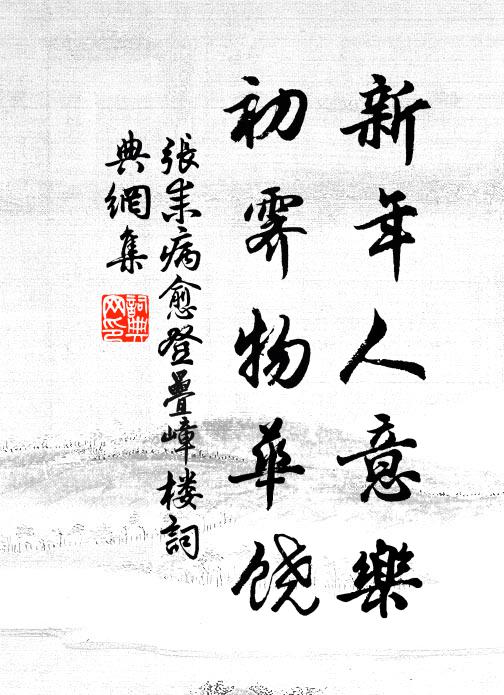 新年人意樂
初霽物華饒
張耒病愈登疊嶂楼詞
典網集
詞典
网印